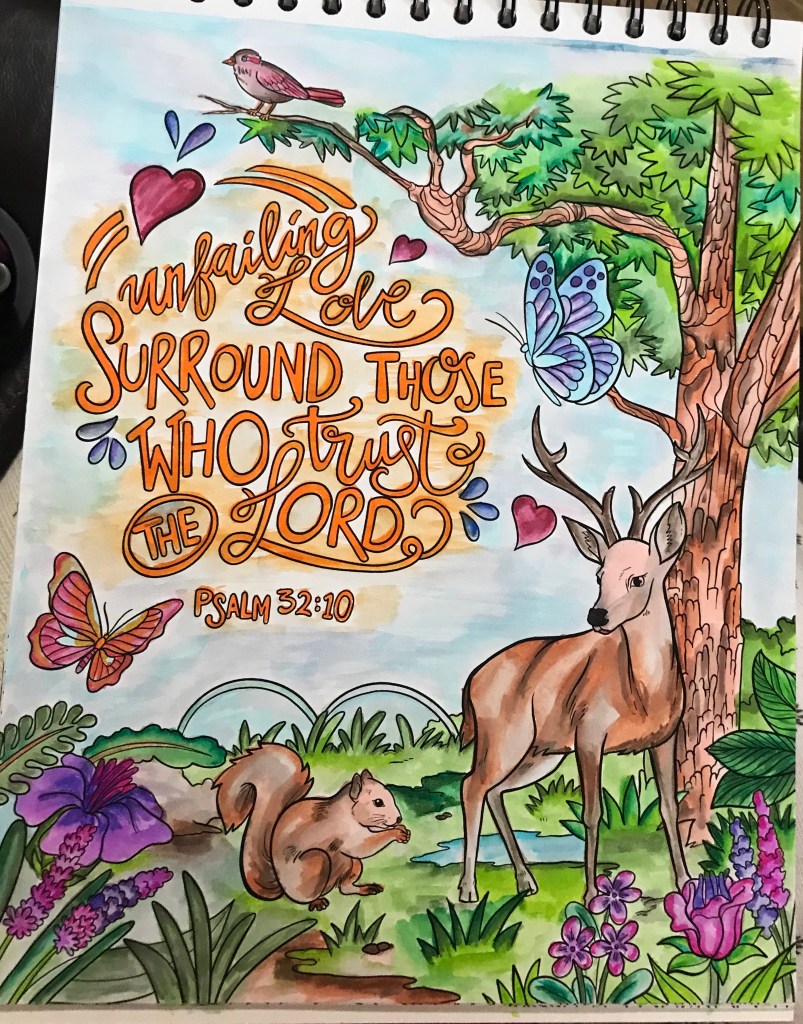 unfailing
Love
SURROUND THOSE
WHO trust
THE LORD
PSALM 32:10